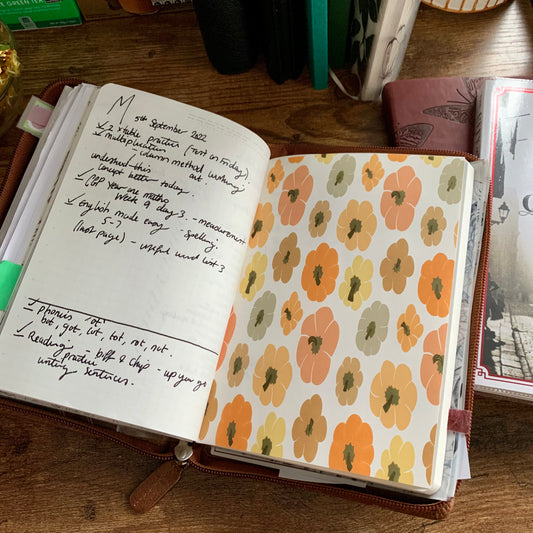 GREEN TEA
M
5th September 2022
✓ 2 x table practice (Test on Friday)
✓ multiplication
- column method working out.
understand this
concept better today.
✓ CGP Year one maths
Week 9 day 3 - measurement
✓ English made easy - spelling.
5-7
(last page) - useful word list 3
✓ Phonics 'ot'
bot, got, lot, tot, rot, not.
✓ Reading - Biff & Chip - up you go
practice
writing sentences.